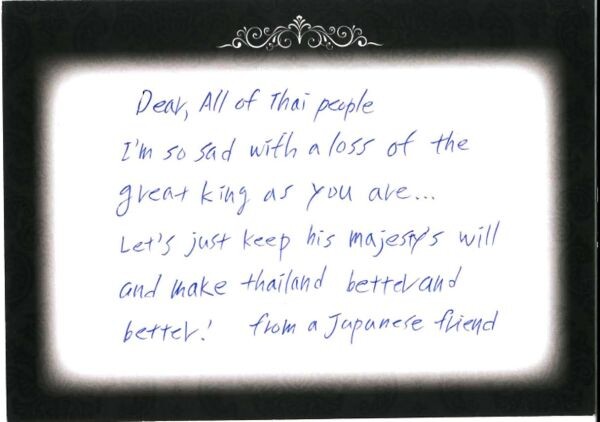 Dear, All of Thai people
I'm so sad with a loss of the
great king as you are...
Let's just keep his majesty's will
and make thailand better and
better! from a Japanese friend